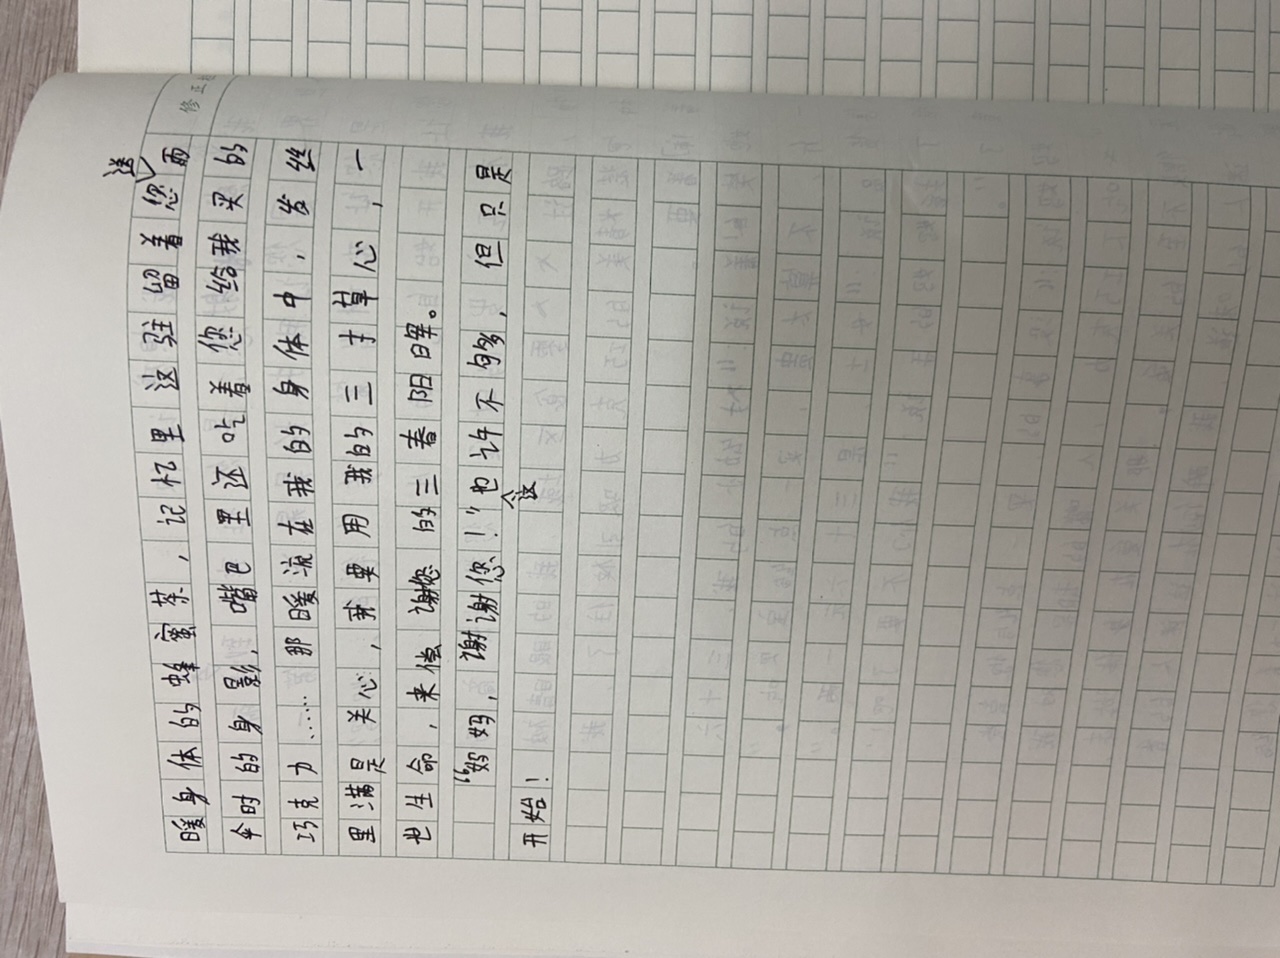 修正
送
暖身体的蜂蜜茶，记忆里这驻留着您雨
伞时的身影，嘴巴里还吃着您给我买的
巧克力……那暖流在我的身体中，发丝
里满是关心，我要用我的三寸草心，一
也生命，来偿谢您的三春阳晖。
“妈妈，谢谢您！”也许不够，但只是
这
开始！